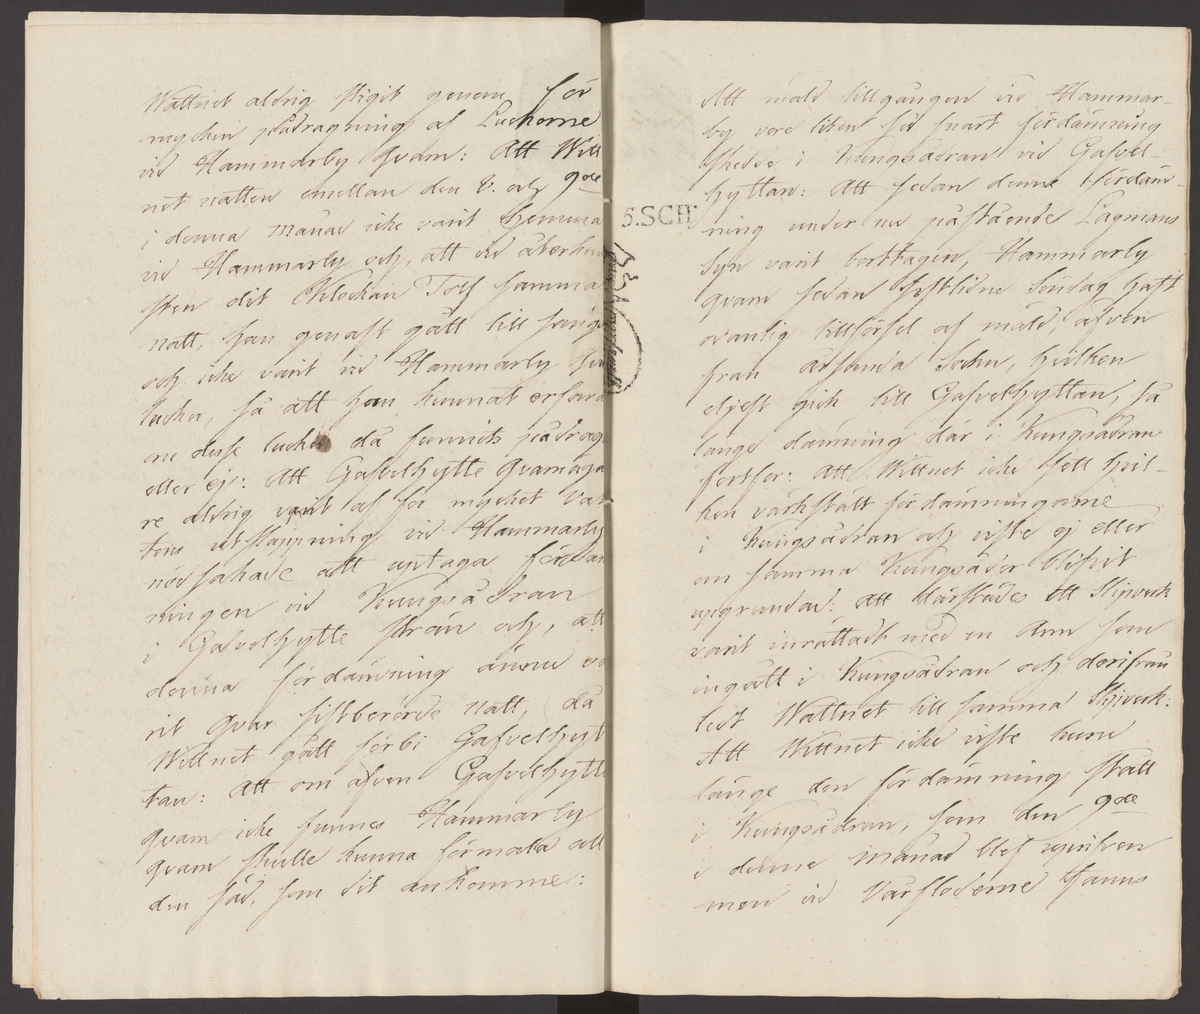 Wattnet aldrig stigit genom för
mycken pådragning af Luckorne
vid Hammarby Qvarn: Att Witt
net natten emellan den 8. och 9de
i denna månad icke varit hemma
vid Hammarby och, att vid återkom
sten dit Klockan Tolf samma
natt, han genast gått till sängs
och icke varit vid Hammarby Qvarn
luckor, så att han kunnat erfara
om desse luckor då funnits pådragne
eller ej: Att Gafvelhytte Qvarnäga
re aldrig varit af för mycket Vat
tens utsläppning vid Hammarby
nödsakade att uptaga fördäm
ningen vid Kungsådran
i Gafvelhytte Ström och, att
denna fördämning ännu va
rit qvar sistberörde Natt, då
Wittnet gått förbi Gafvelhyt
tan: Att om äfven Gafvelhytte
qvarn icke funnes Hammarby
qvarn skulle kunna förmala all
den säd, som dit ankomme:
5.SCH:
Att mäld tillgången vid Hammar-
by vore liten så snart fördämning
skedde i Kungsådran vid Gafvel-
hyttan: Att sedan denna fördäm-
ning under nu påstående Lagmans
Syn varit borttagen, Hammarby
qvarn sedan sistlidne Söndag haft
ovanlig tillförsel af mäld, äfven
från Asfunda Sokn, hvilken
eljest gick till Gafvelhyttan, så
länge dämning där i Kungsådran
fortfor: Att Wittnet icke sett hvil-
ken värkstält fördämningarne
i Kungsådran och viste ej eller
om samma Kungsåder blifvit
upgrundad: Att därstädes ett Slipverk
varit inrättadt med en Arm som
ingått i Kungsådran och derifrån
ledt Wattnet till samma Slipverk:
Att Wittnet icke viste huru
länge den fördämning stått
i Kungsådran, som den 9de
i denne månad blef uprifven
men vid Vårfloderne fanns